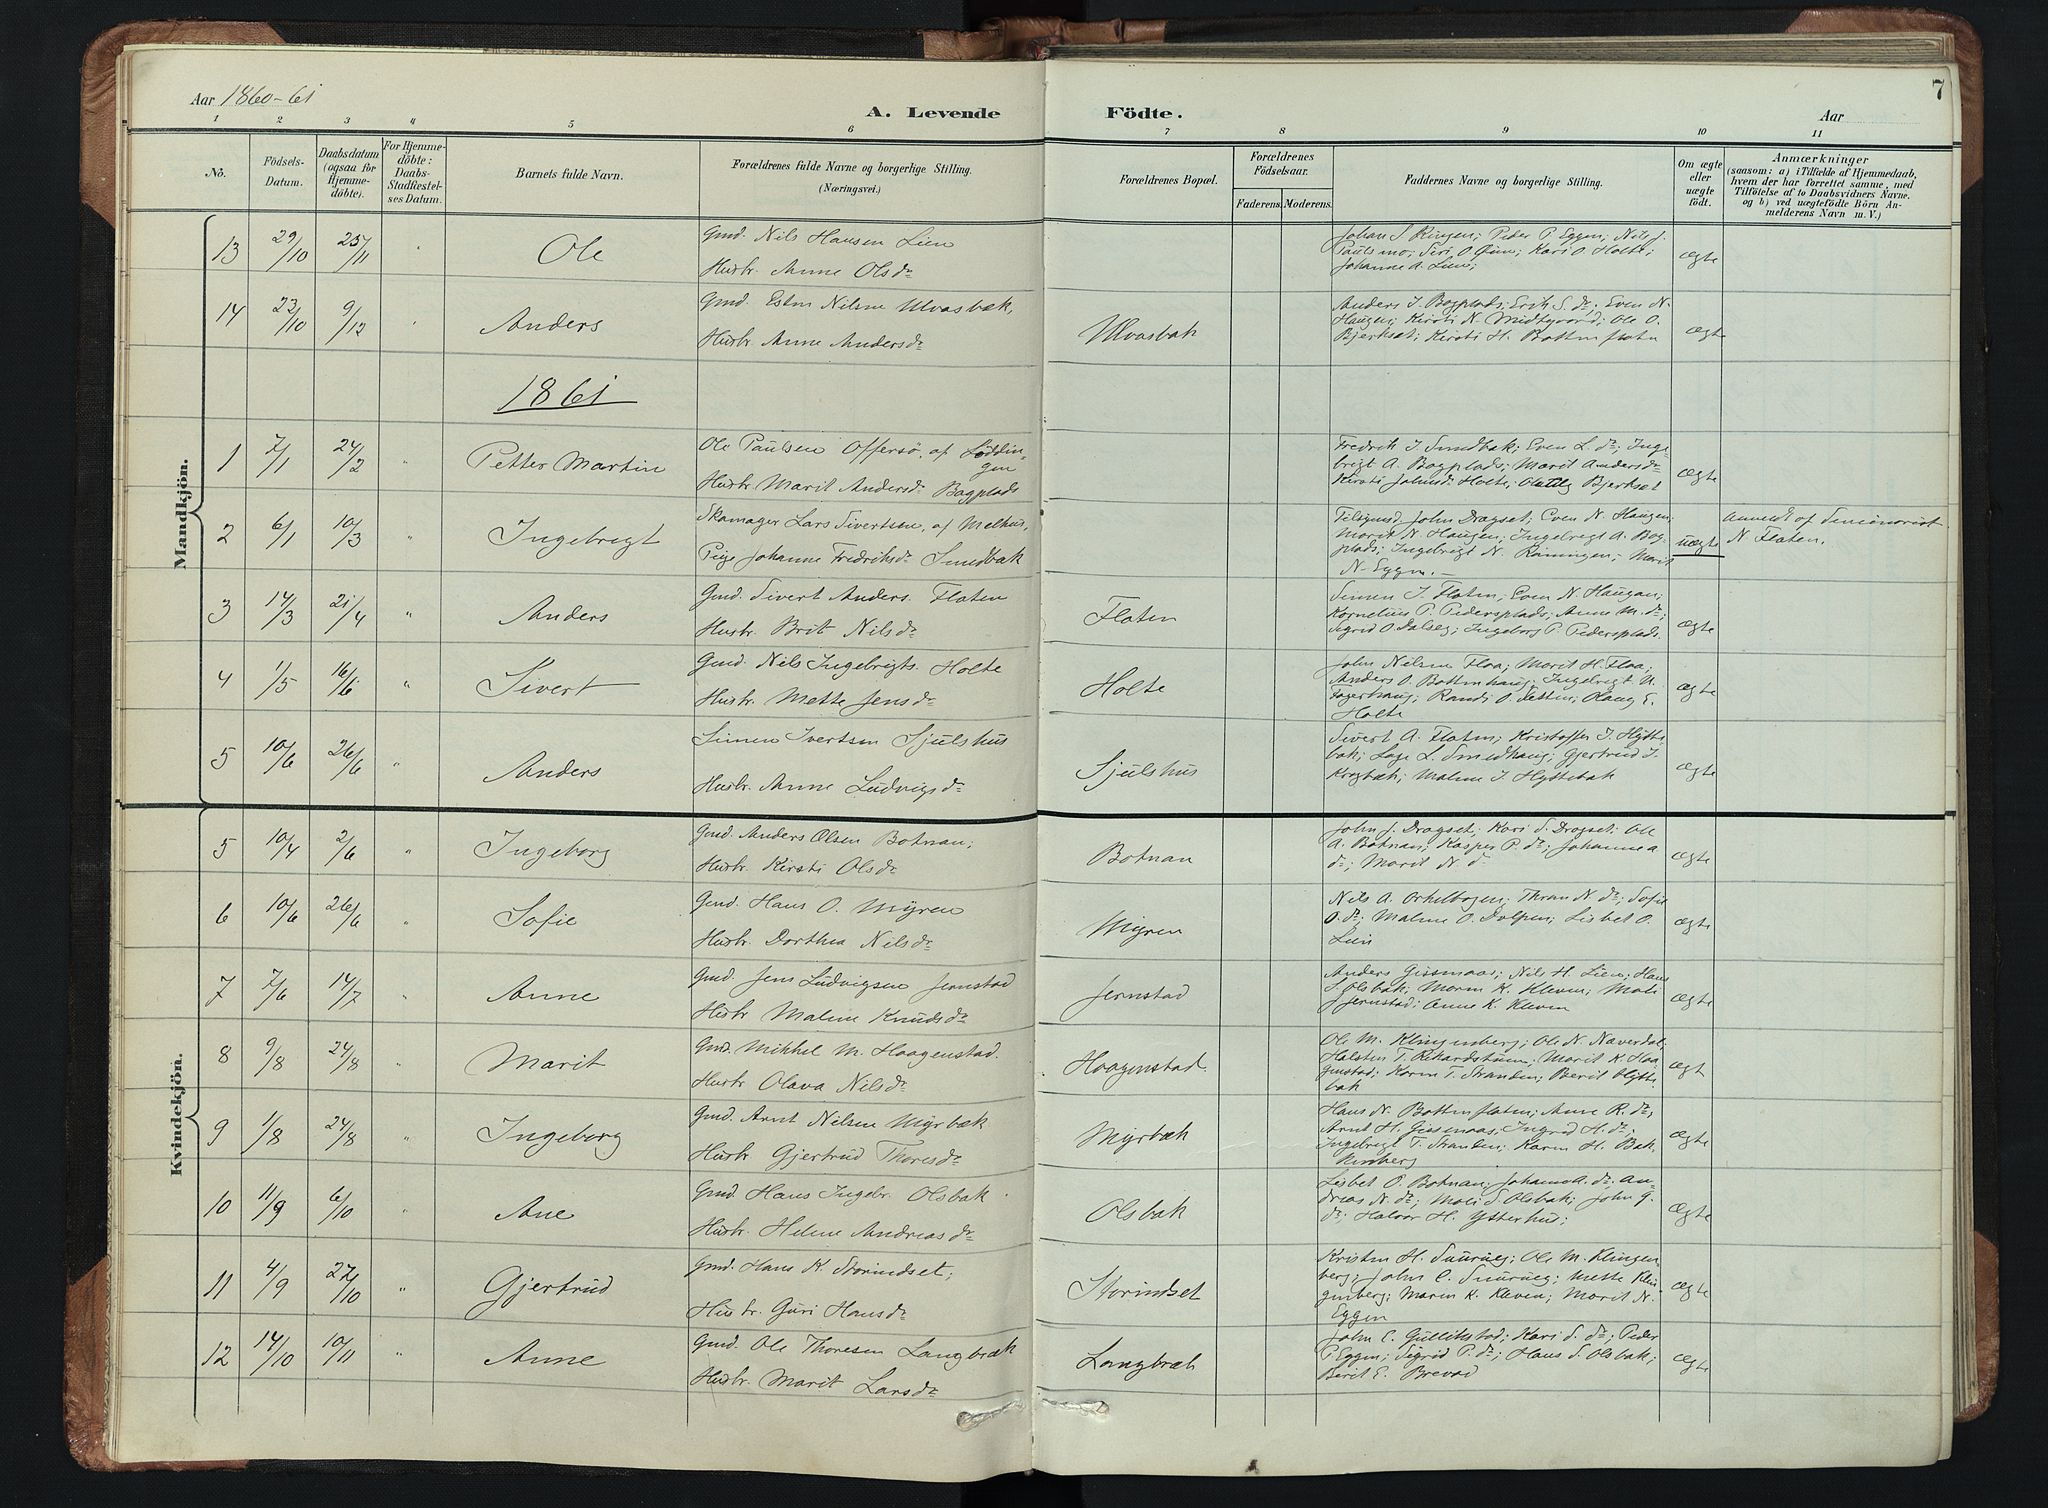 Aar 1860-61
A. Levende Födte.
Aar
7
1 2 3 4 5 6 7 8 9 10 11
No.
Födsels-Datum.
Daabsdatum (ogsaa for Hjemmedöbte).
For Hjemmedöbte: Daabs-Stadfæstelses Datum.
Barnets fulde Navn.
Forældrenes fulde Navne og borgerlige Stilling.
(Næringsvei.)
Forældrenes Bopæl.
Forældrenes Födselsaar.
Faderens. Moderens.
Faddernes Navne og borgerlige Stilling.
Om ægte eller uægte födt.
Anmærkninger
(saasom: a) i Tilfælde af Hjemmedaab, hvem der har forrettet samme, med Tilföielse af to Daabsvidners Navne. og b) ved uægtefödte Börn Anmelderens Navn m.V.)
Mandkjön.
13 29/10 25/11 " Ole
Gmd. Nils Hansen Lien
Hustr. Anne Olsdr
Johan S. Ringen; Peder P. Eggen; Nils J.
Paulsmo; Siri O. ; Kari O. Holte;
Johanne A. Lien;
Ægte
14 22/10 9/12 " Anders
Gmd. Esten Nilsen Ulvasbæk,
Hustr. Anne Andersdr
Ulvasbak
Anders J. Bagplads; Erik S. dr; Even N.
Haugen; Kirsti N. Midtgaard; Ole O.
Bjerkset; Kirsti H. Bottenfloten
Ægte
1861
1 7/1 24/2 " Petter Martin
Ole Paulsen Offersø, af Löddingen
Hustr. Marit Andersdr Bagplads
Fredrik J. Smedbak; Even L. dr; Ingebrigt A. Bagplads; Marit Andersdr
Kirsti Johnsdr Holte; Bjerkset
Ægte
2 6/1 10/3 " Ingebrigt
Skomager Lars Sivertsen, af Melhus,
Pige Johanne Fredriksdr Smedbæk
John Dragset; Even N. Haugen;
Marit N. Haugen; Ingebrigt A. Bagplads; Ingebrigt N. Ronningen; Marit
N. Eggen.
uægte
Anmeldt af
N Floten.
3 14/3 21/4 " Anders
Gmd. Sivert Anders. Floten
Hustr. Brit Nilsdr
Floten
Simen J. Floten; Even N. Haugan;
Kornelius P. Pedersplads; Anne M. dr;
Sigrid O. Dalseg; Ingeborg P. Pedersplads.
Ægte
4 1/5 16/6 " Sivert
Gmd. Nils Ingebrigts. Holte
Hustr. Mette Jensdr
Holte
John Nilsen Floa; Marit H. Floa;
Anders O. Bottenhaug; Ingebrigt N.
Fagerhaug; Randi O. ; Haag E.
Holte
Ægte
5 10/6 26/6 " Anders
Simen Ivertsen Sjulshus
Hustr. Anne Ludvigsdr
Sjulshus
Sivert A. Floten; Kristoffer J. Hyttebak; Lage L. Smedhaug; Gjertrud J.
Krogbæk; Malene J. Hyttebak
Ægte
Kvindekjön.
5 10/4 2/6 " Ingeborg
Gmd. Anders Olsen Botnan;
Hustr. Kirsti Olsdr
Botnan
John J. Dragset; Kari S. Dragset; Ole
A. Botnan; Kasper P. dr; Johanne A
dr; Marit N. dr
Ægte
6 10/6 26/6 " Sofie
Gmd. Hans O. Myren
Hustr. Dorthea Nilsdr
Myren
Nils A. Orkelbogen; Thran N. dr; Sofie
O. dr; Malene O. Dolpen; Lisbet O.
Lien
Ægte
7 7/6 14/7 " Anne
Gmd. Jens Ludvigsen Jernstad
Hustr Malene Knudsdr
Jernstad
Anders Gissnaas; Nils H. Lien; Hans
S. Olsbak; Maren K. Kleven; Mali
J Jernstad; Anne K. Kleven
Ægte
8 9/8 24/8 " Marit
Gmd. Mikkel M. Haagenstad.
Hustr Olava Nilsdr
Haagenstad.
Ole M. Klingenberg; Ole N. Næverdal;
Halsten T. Rikardstuen; Marit K. Haagenstad; Karen T. Stranden; Berit Hyttebak
Ægt
9 1/8 24/8 " Ingeborg
Gmd. Arnt Nilsen Myrbæk
Hustr Gjertrud Thoresdr
Myrbæk
Hans N. Bottenfloten; Anne R. dr;
Arnt H. Gissenaas; Ingrid H. dr;
Ingebrigt T. Stranden; Karen H. Bakkenberg
Ægte
10 11/9 6/10 " Ane
Gmd. Hans Ingebr. Olsbak
Hustr. Helene Andreasdr
Olsbak
Lisbet O. Botnan; Johan A. dr. Andreas N. dr; Mali S. Olsbak; John G.
dr; Halvor H. Ytterhus;
Ægte
11 4/9 27/10 " Gjertrud
Gmd. Hans K. Storindset;
Hustr. Guri Hansdr
Storindset
Kristen H. ; Ole M. Klingenberg; John C. ; Mette Klingenberg; Maren K. Kleven; Marit N.
Eggen
Ægte
12 14/10 10/11 " Anne
Gmd. Ole Thoresen Langbræk
Hustr. Marit Larsdr
Langbræk
John C. Gullikstad; Kari S. dr; Peder
P Eggen; Sigrid P. dr; Hans S. Olsbak;
Berit E. Brevad
Ægte